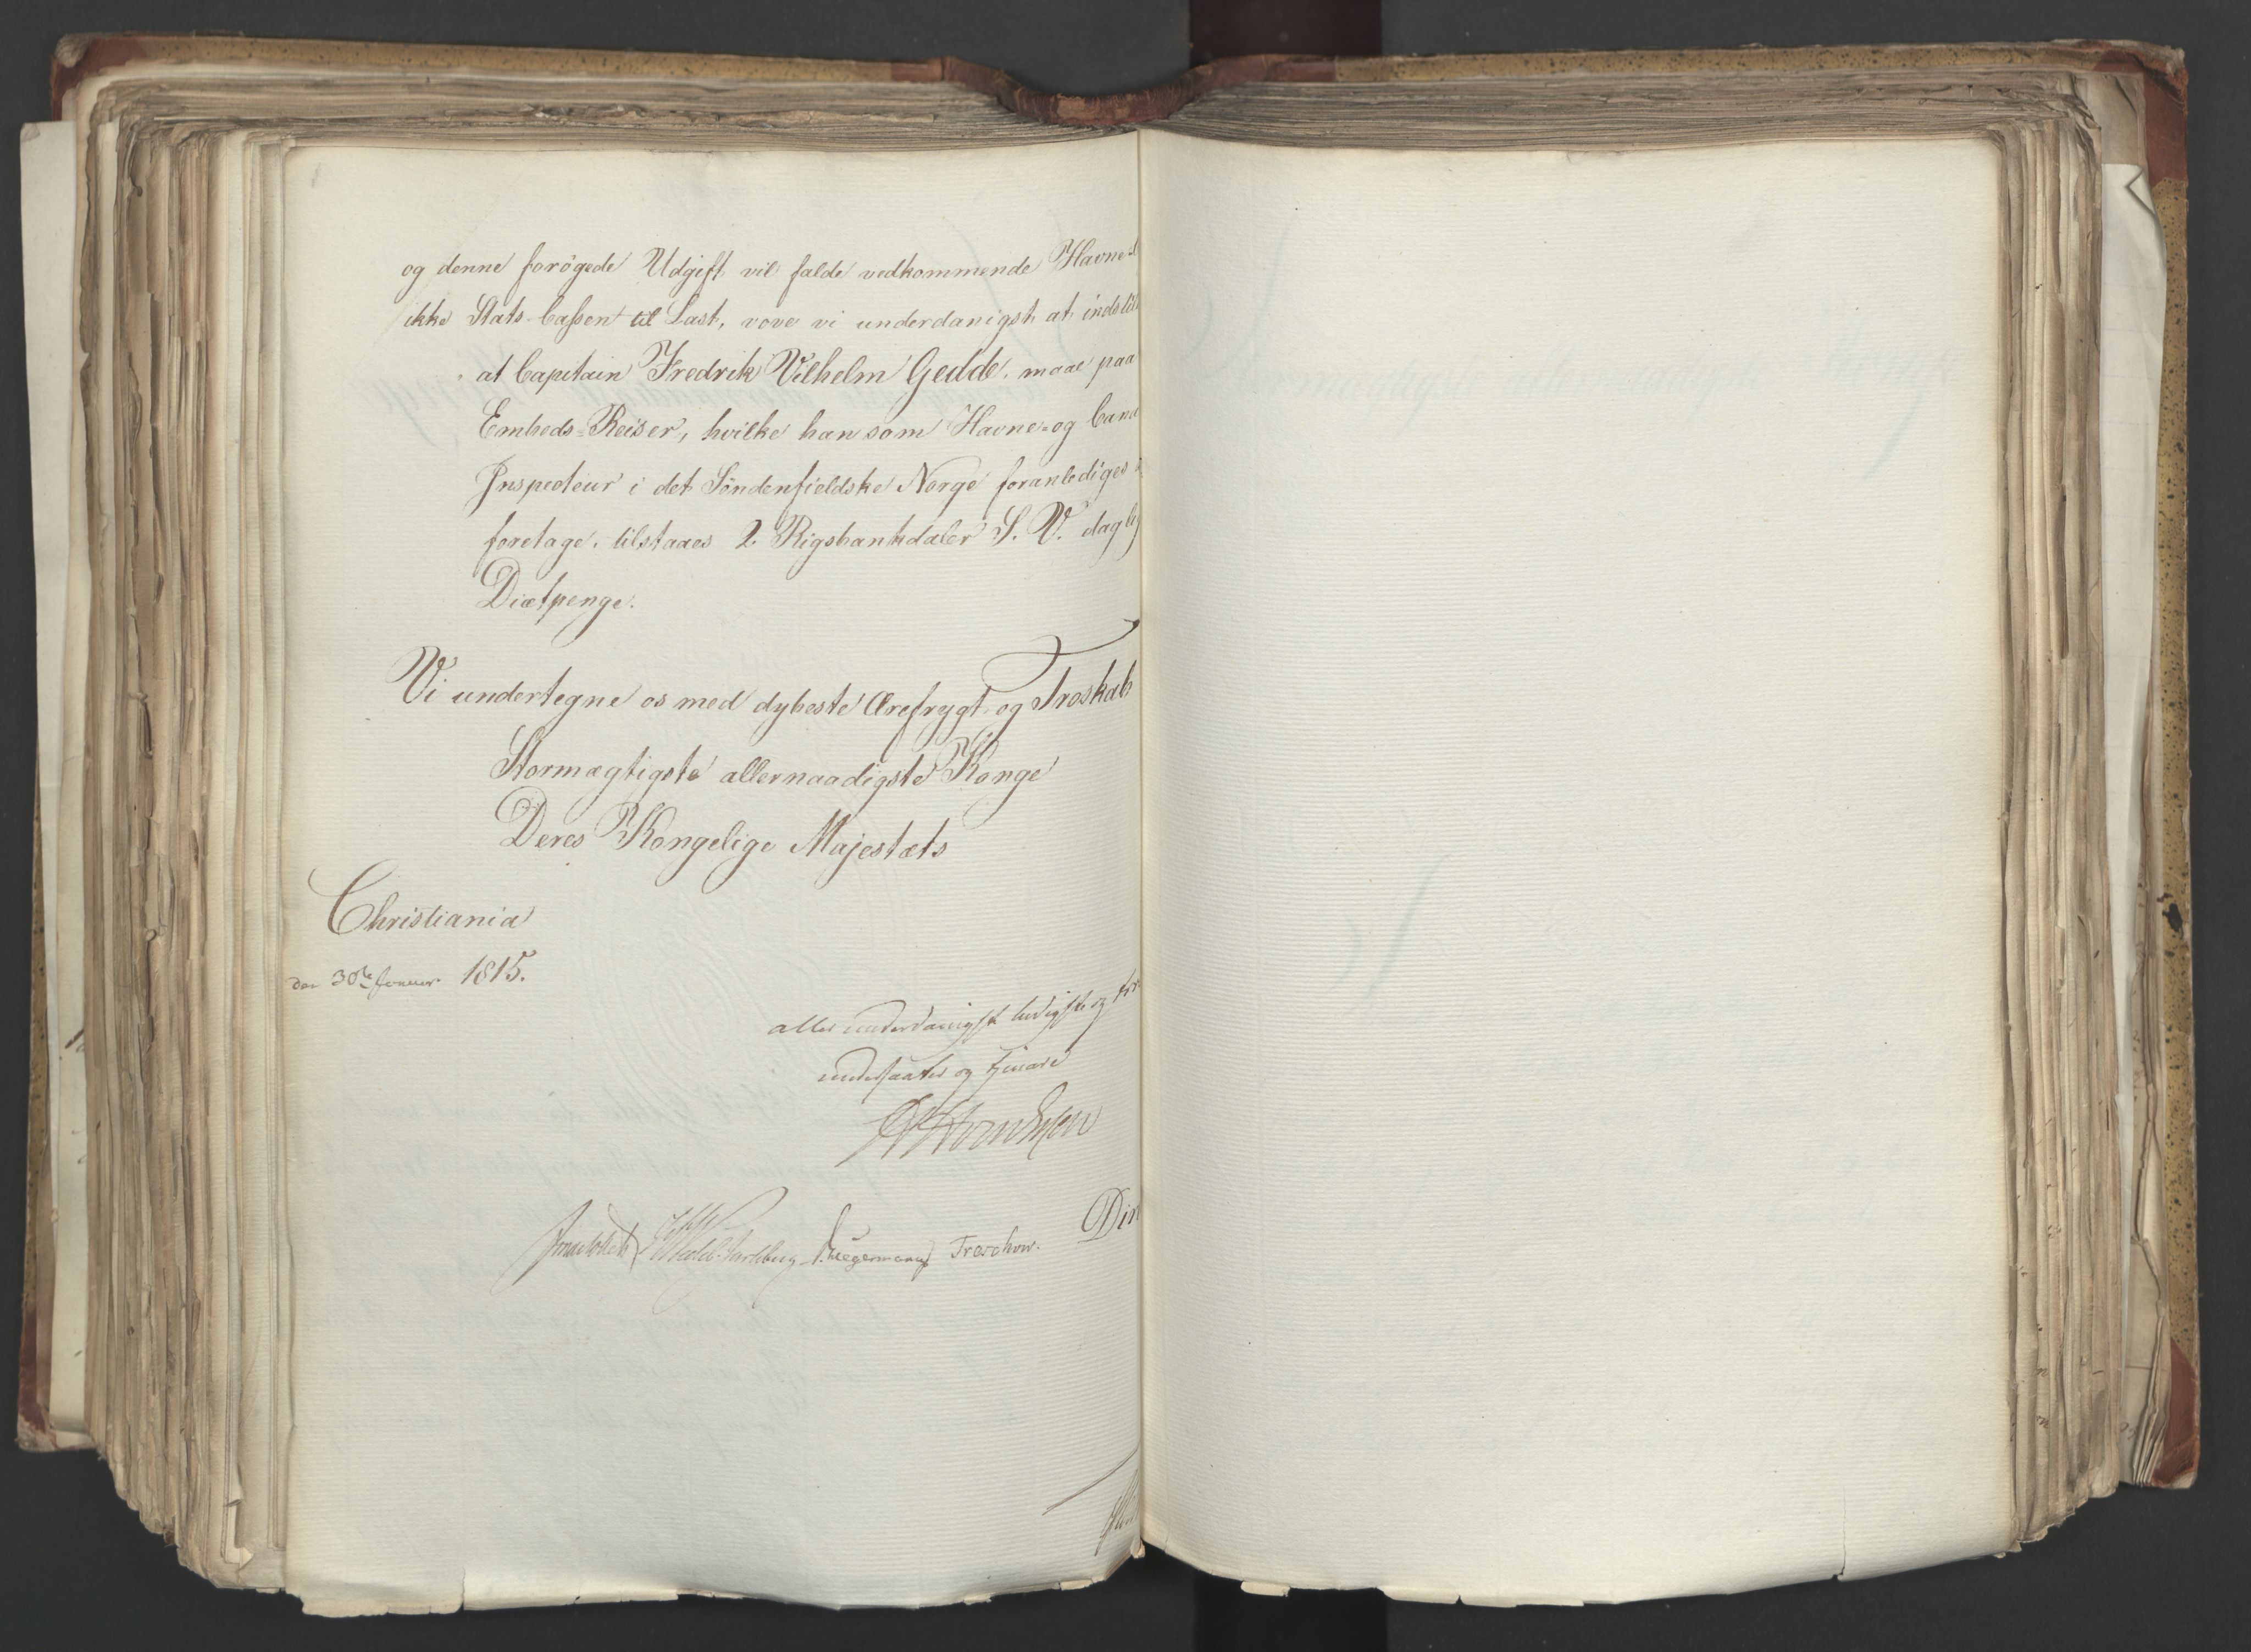 og denne forögede Udgift vil falde vedkommende Havne
ikke Stats-Cassen til Last, vove vi underdanigst at indstil
at Capitain Fredrik Vilhelm Gedde, maae paa
Embeds-Reiser, hvilke han som Havne- og Cana
Inspecteur i det Söndenfieldske Norge foranlediges
foretage, tilstaaes 2 Rigsbankdaler S. V. daglig
Diætpenge.
Vi undertegne os med dybeste Ærefrygt og Troskab
Stormægtigste allernaadigste Konge
Deres Kongelige Majestæts
Christiania
den 30te Januar 1815.
aller underdanigst lydigste og tro
undersaatter og tjenere
Wedel-Jarlsberg Hegermann Treschow.